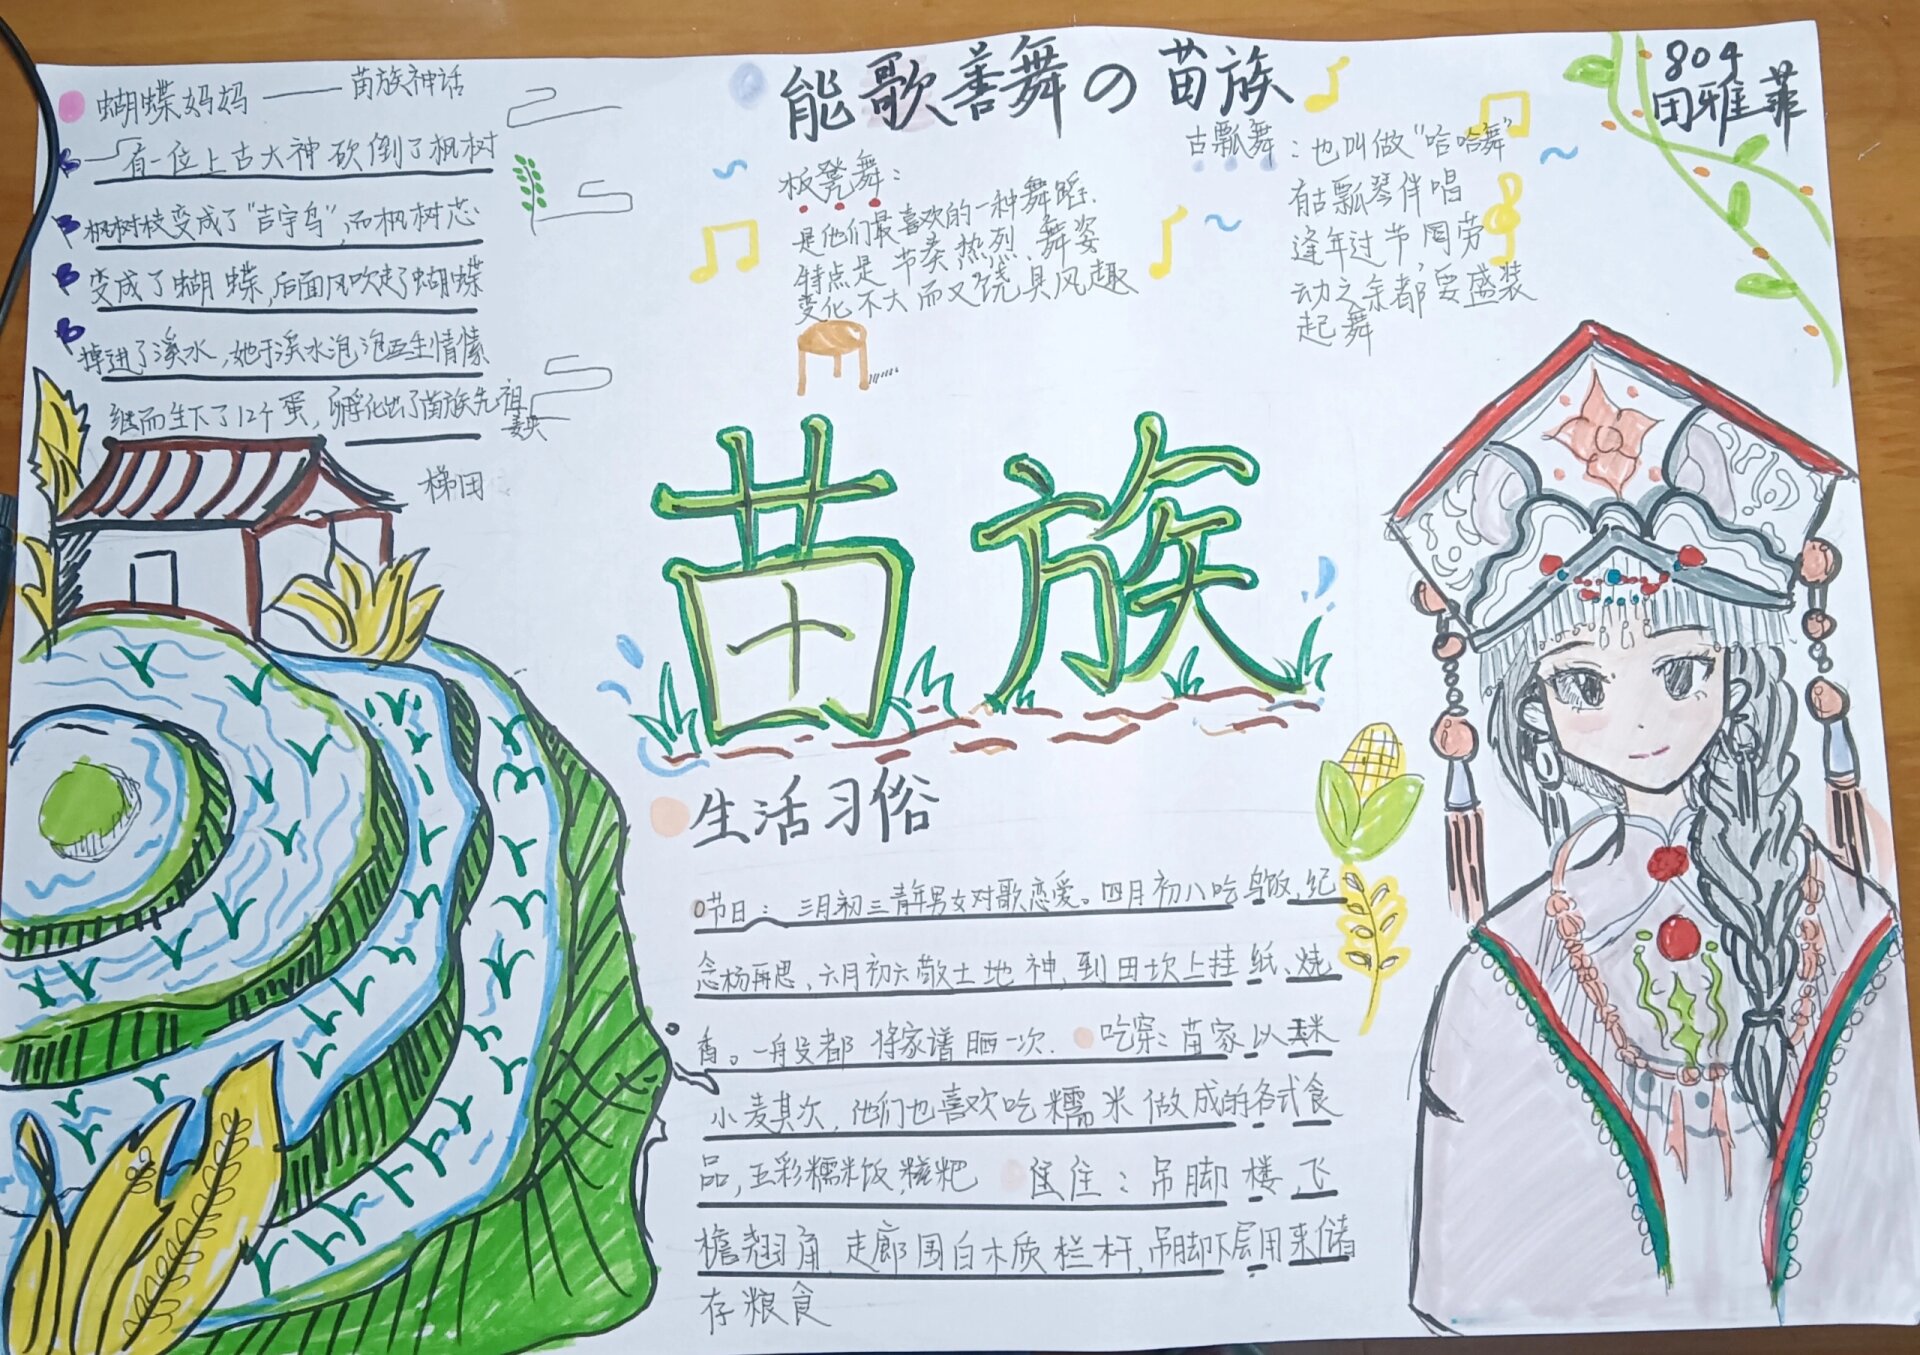 蝴蝶妈妈——苗族神话
有一位上古大神砍倒了枫树
枫树枝变成了“吉宇鸟”,而枫树芯
变成了蝴蝶,后面风吹走了蝴蝶
掉进了溪水,她于溪水泡泡互生情愫
继而生下了12个蛋,孵化出了苗族先祖
姜央
梯田
能歌善舞の苗族
板凳舞:
是他们最喜欢的一种舞蹈.
特点是节奏,热烈、舞姿
变化不大而又饶具风趣
古瓢舞:也叫做“哈哈舞”
有古瓢琴伴唱
逢年过节,闲劳
动之余都要盛装
起舞
804
田雅菲
苗族
生活习俗
节日:三月初三青年男女对歌恋爱。四月初八吃乌饭,纪
念杨再思,六月初六敬土地神,到田坎上挂纸、烧
香。一般没都将家谱晒一次. 吃穿:苗家以玉米
小麦其次,他们也喜欢吃糯米做成的各式食
品,五彩糯米饭,糍粑 住:吊脚楼,飞
檐翘角,走廊围白木质栏杆,吊脚下层用来储
存粮食